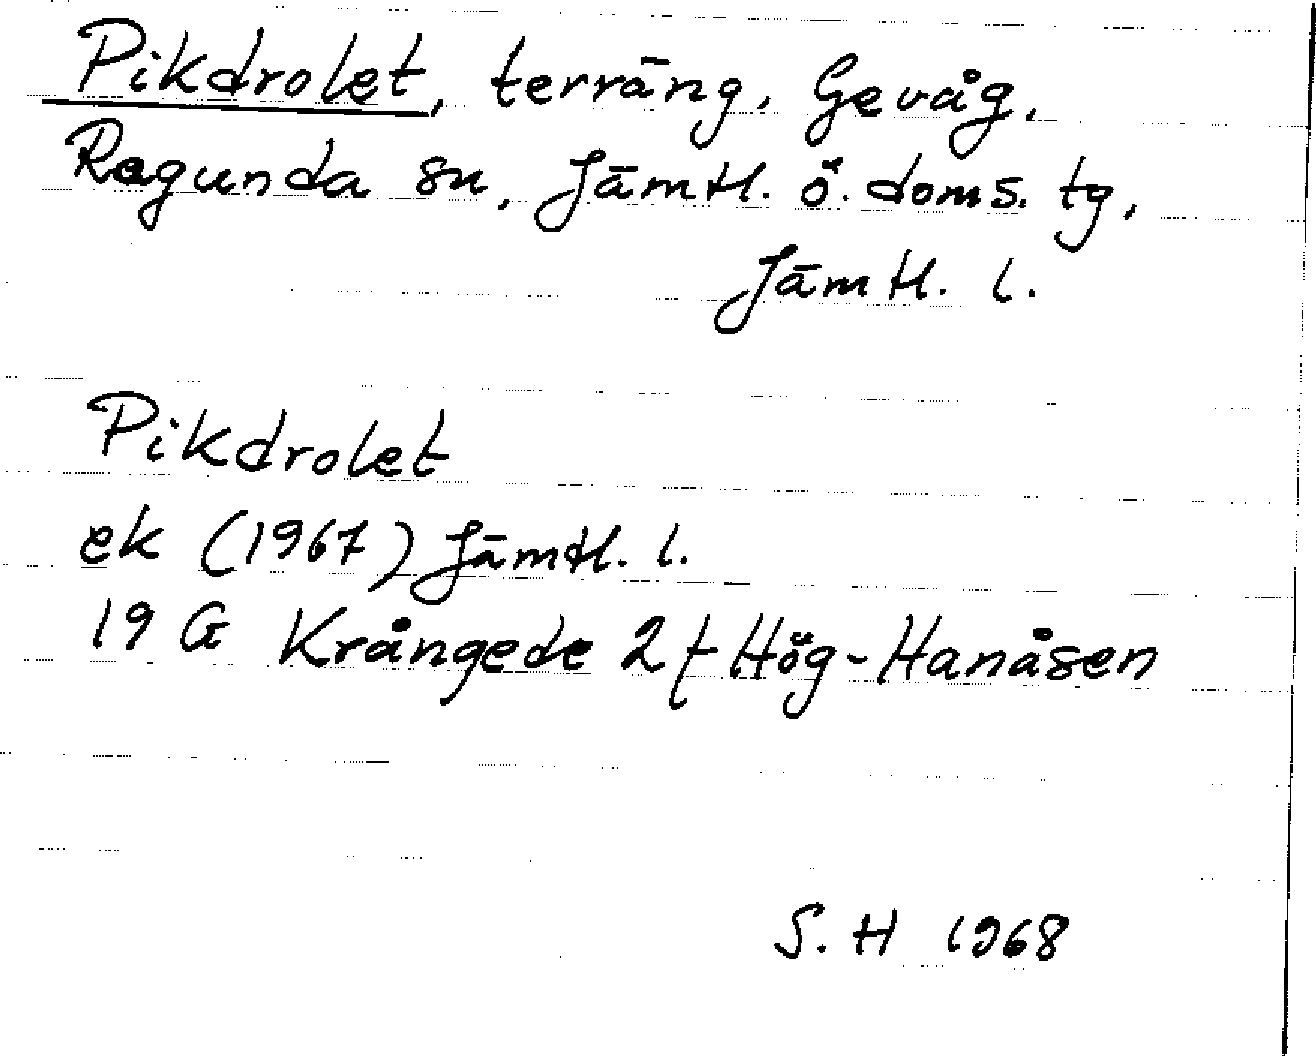 Pikdrolet, terräng, Gevåg,
Ragunda sn, Jämtl. ö. doms. tg,
Jämtl. l.
Pikdrolet
ek (1967) Jämtl. l.
19 G Krångede 2 f Hög-Hanåsen
S. H 1968